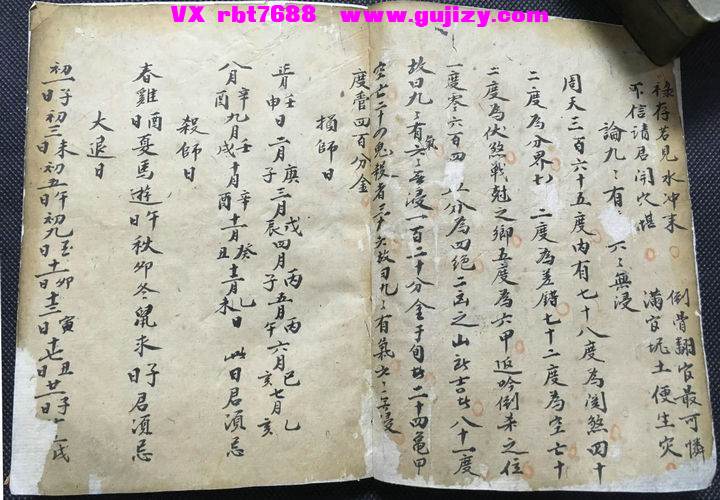 VX rbt7688 www.gujizy.com
祿存若見水冲来 倒骨翻官最可憐
不信請君開坟墈 滿官坭土便生灾
論九々有 六々無浸
周天三百六十五度內有七十八度為関煞四十
二度為分界七 二度為差錯七十二度為空亡十
二度為伏煞戰尅之鄉五度為六甲返吟倒来之位
一度零六百四 分為四絕 之山 吉 八十一度
故曰九々有氣六々無浸一百二十分金于旬 二十四亀甲
空亡二十四 殺者 故曰九々有氣六々無浸
度管四百分金
損師日
正月壬申日二月庚子三月戊辰四月丙子五月丙午六月己亥七月乙亥
八月辛酉九月壬戌十月辛酉十一月癸丑十二月乙未日 此日君須忌
殺師日
春雞酉日夏馬遊午日秋卯冬鼠来子日君須忌
大退日
初一子日初三未日初五午日初九 日十一卯日十三寅日十七丑日廿一子日 戌